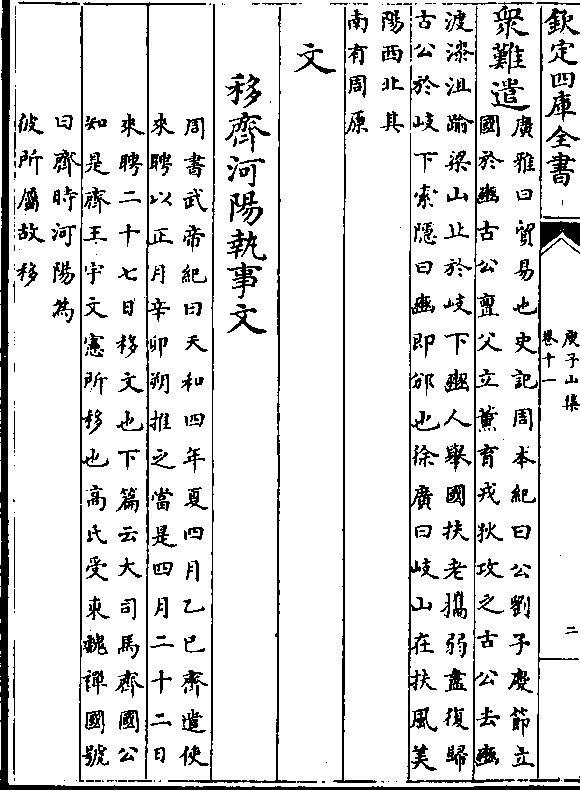 欽定四庫全書
庾子山集
卷十一
二
眾難遣
廣雅曰貿易也史記周本紀曰公劉子慶節立
國於豳古公亶父立薰育戎狄攻之古公去豳
渡漆沮踰梁山止於岐下豳人舉國扶老攜弱盡復歸
古公於岐下索隱曰豳即邠也徐廣曰岐山在扶風美
陽西北其
南有周原
文
移齊河陽執事文
周書武帝紀曰天和四年夏四月乙巳齊遣使
來聘以正月辛卯朔推之當是四月二十二日
來聘二十七日移文也下篇云大司馬齊國公
知是齊王宇文憲所移也高氏受東魏禪國號
曰齊時河陽為
彼所屬故移